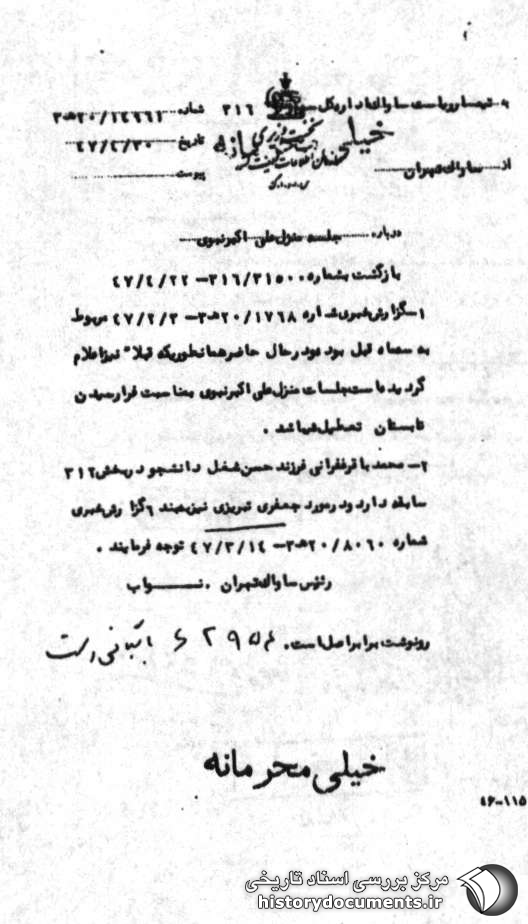 به تیمسار ریاست ساواک اداره کل سوم ۳۱۶
شماره ۲۰/۱۴۶۶۱هـ۳
نخست وزیری
خیلی محرمانه
تاریخ ۴۷/۴/۳۰
سازمان اطلاعات و امنیت کشور
از ساواک تهران
پیوست
س.ا.و.ا.ک
درباره جلسه منزل علی اکبر نبوی
بازگشت بشماره ۳۱۶/۳۱۵۰۰ – ۴۷/۴/۲۲
۱– گزارش خبری شماره ۲۰/۱۷۶۸هـ۳ – ۴۷/۲/۳ مربوط
به سه ماه قبل بوده و در حال حاضر همانطوریکه قبلا" نیز اعلام
گردیده است جلسات منزل علی اکبر نبوی بمناسبت فرا رسیدن
تابستان تعطیل میباشد .
۲– محمد باقر فرزند حسن شغل دانشجو در بخش ۳۱۲
سابقه دارد و در مورد جعفری تبریزی نیز به بند ۶ گزارش خبری
شماره ۲۰/۸۰۶۰هـ۳ – ۴۷/۳/۱۴ توجه فرمایند .
رئیس ساواک تهران . نواب
رونوشت برابر اصل است.
بایگانی است
خیلی محرمانه
۴۶-۱۱۵
مرکز بررسی اسناد تاریخی
historydocuments.ir